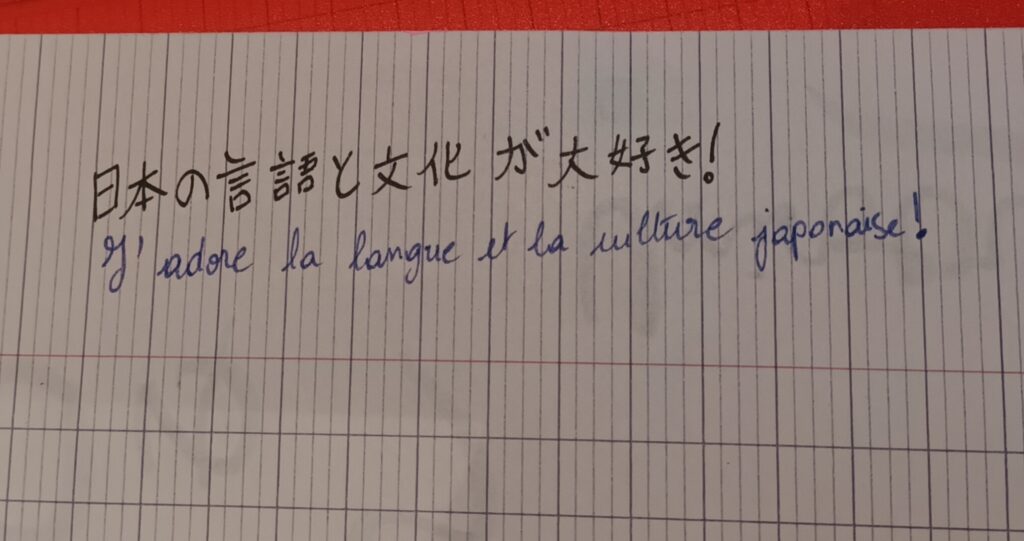 日本の言語と文化が大好き!
J'adore la langue et la culture japonaise!